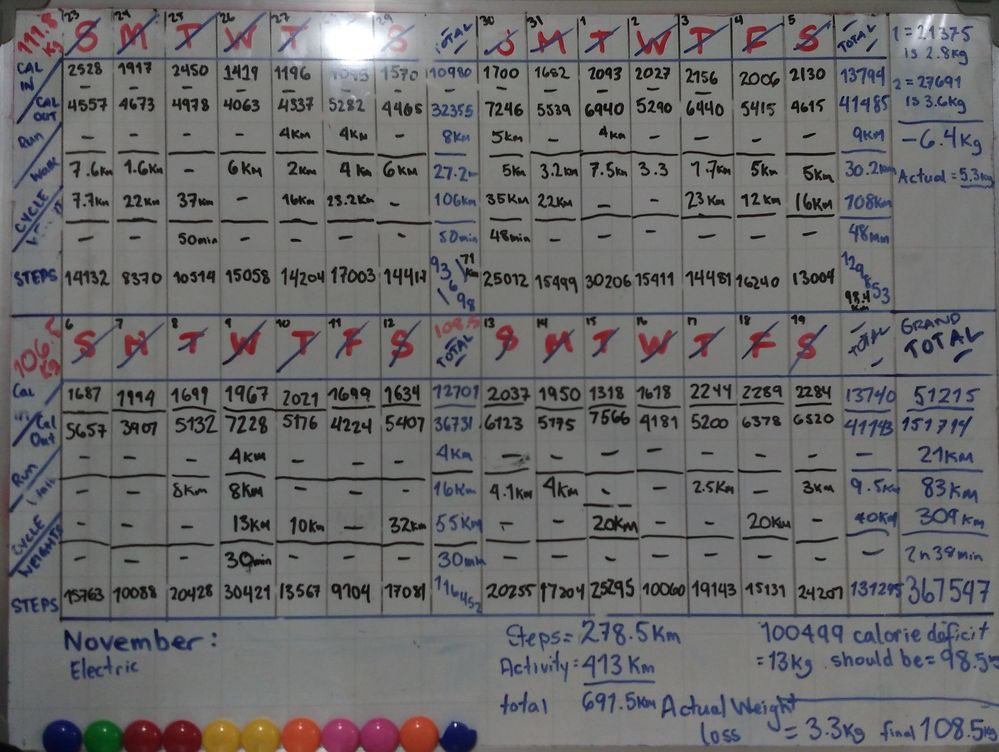 111.8 23 24 25 26 27 29 30 31 1 2 3 4 5
Kg S M T W T S TOTAL S M T W T F S TOTAL 1 = 21375
CAL IN 2528 1917 2450 1419 1196 1570 10980 1700 1682 2093 2027 2156 2006 2130 13794 is 2.8Kg
2 = 27691
CAL OUT 4557 4673 4978 4063 4337 5282 4465 32355 7246 5539 6940 5290 6440 5415 4615 41485 is 3.6Kg
Run - - - - 4Km 4Km - 8Km 5Km - 4Km - - - - 9Km -6.4Kg
Walk 7.6Km 1.6Km - 6Km 2Km 4Km 6Km 27.2 5Km 3.2Km 7.5Km 3.3 1.7Km 5Km 5Km 30.2Km Actual = 5.3Kg
CYCLE 7.7Km 22Km 37Km - 16Km 23.2Km - 106Km 35Km 22Km - - 23Km 12Km 16Km 108Km
- - 50min - - - - 50min 48min - - - - - - 48min
STEPS 14132 8370 10514 15058 14204 17003 14417 93,698 71Km 25012 15499 30206 15411 14481 16240 13004 129853 98.4Km
6 7 8 9 10 11 12 108.5 13 14 15 16 17 18 19 GRAND
106. Kg S M T W T F S TOTAL S M T W T F S TOTAL TOTAL
Cal in 1687 1994 1699 1967 2021 1699 1634 12701 2037 1950 1318 1618 2244 2289 2284 13740 51215
Cal Out 5657 3907 5132 7228 5176 4224 5407 36731 6123 5175 7566 4181 5200 6378 6520 41143 151714
Run - - - 4Km - - - 4Km - - - - - - - - 21Km
- - 8Km 8Km - - - 16Km 4.1Km 4Km - - 2.5Km - 3Km 9.5Km 83Km
CYCLE - - - 13Km 10Km - 32Km 55Km - - 20Km - - 20Km - 40Km 309Km
WEIGHTS - - - 30min - - - 30min - - - - - - - - 2h38min
STEPS 15763 10088 20428 30421 13567 9104 17081 116452 20255 17204 25295 10060 19143 15131 24207 131295 367547
November: Steps = 278.5Km 100499 calorie deficit
Electric Activity: 413 Km = 13Kg should be = 98.5
total 691.5Km Actual Weight
loss = 3.3Kg final 108.5Kg